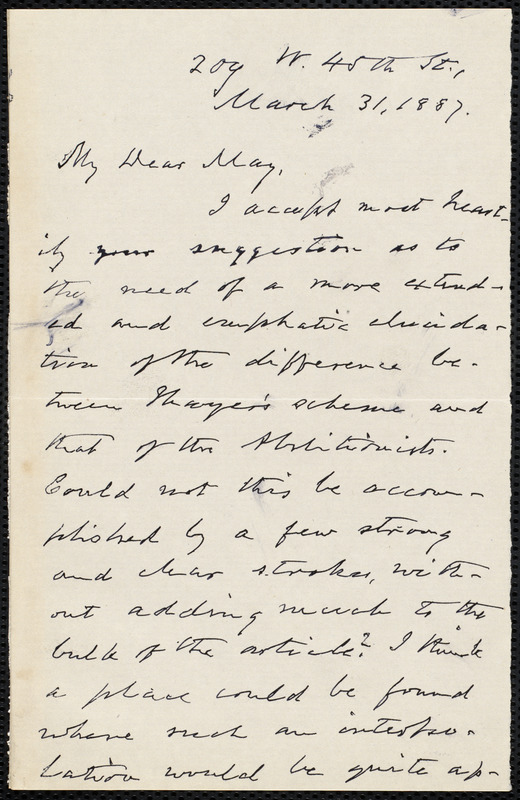 209 W. 45th St.,
March 31, 1887.
My Dear May,
I accept most heart-
ily your suggestion as to
the need of a more extend-
ed and emphatic elucida-
tion of the difference be-
tween Thayer's scheme and
that of the Abolitionists.
Could not this be accom-
plished by a few strong
and clear strokes, with-
out adding much to the
bulk of the article? I think
a place could be found
where such an interpo-
lation would be quite ap-